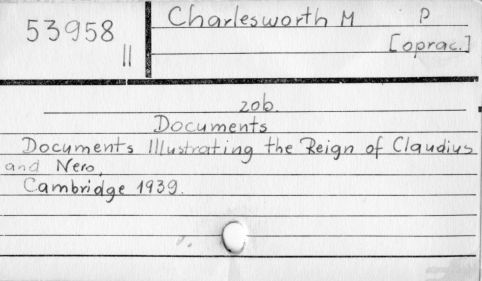 53958
II
Charlesworth M P
[oprac.]
zob.
Documents
Documents Illustrating the Reign of Claudius
and Nero,
Cambridge 1939.